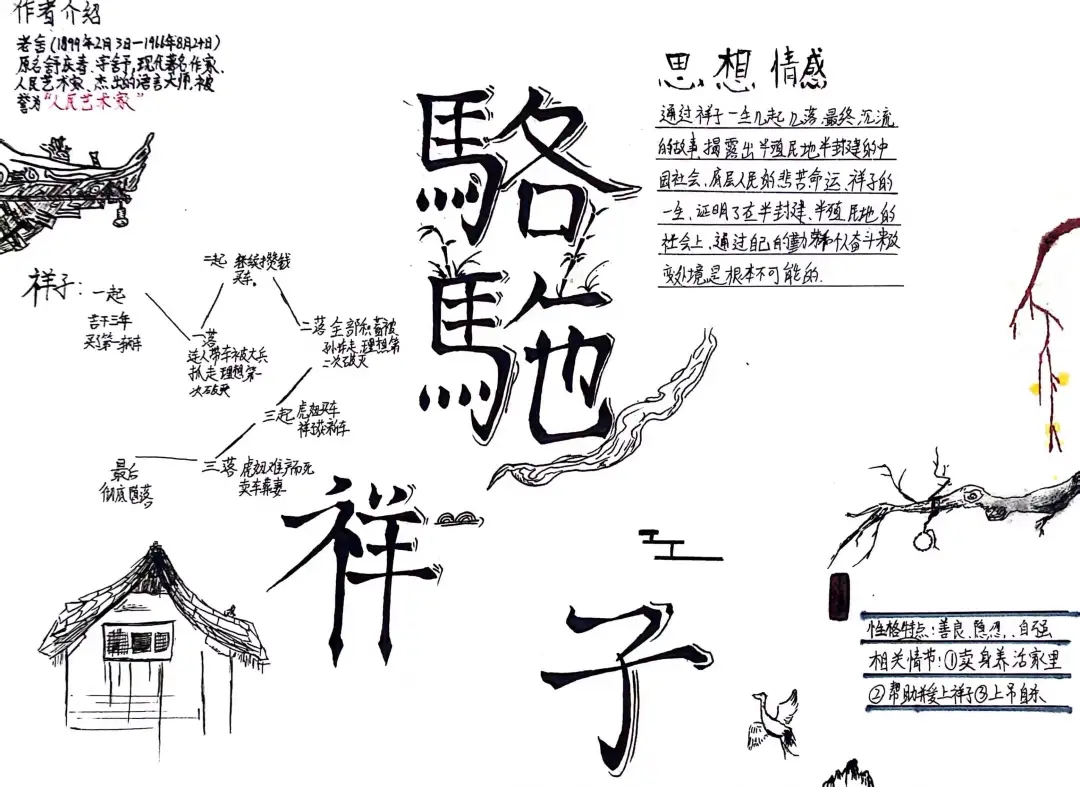 作者介绍
老舍(1899年2月3日—1966年8月24日)
原名舒庆春、字舍予,现代著名作家、
人民艺术家、杰出的语言大师,被
誉为“人民艺术家”
駱
駞
祥
子
思想情感
通过祥子一生几起几落、最终沉流
的故事,揭露出半殖民地半封建的中
国社会、底层人民的悲苦命运、祥子的
一生、证明了在半封建、半殖民地的
社会上、通过自己的勤劳和个人奋斗来改
变处境是根本不可能的.
祥子:
一起
苦干三年
买了第一辆车
一落
连人带车被大兵
抓走,理想第一
次破灭
二起 继续攒钱
买车。
二落 全部积蓄被
孙侦走,理想第
二次破灭
三起 虎妞买车
祥子
三落 虎妞难产而死
卖车葬妻
最后
彻底堕落。
性格特点:善良、隐忍、自强
相关情节:①卖身养活家里
②帮助并爱上祥子③上吊自杀